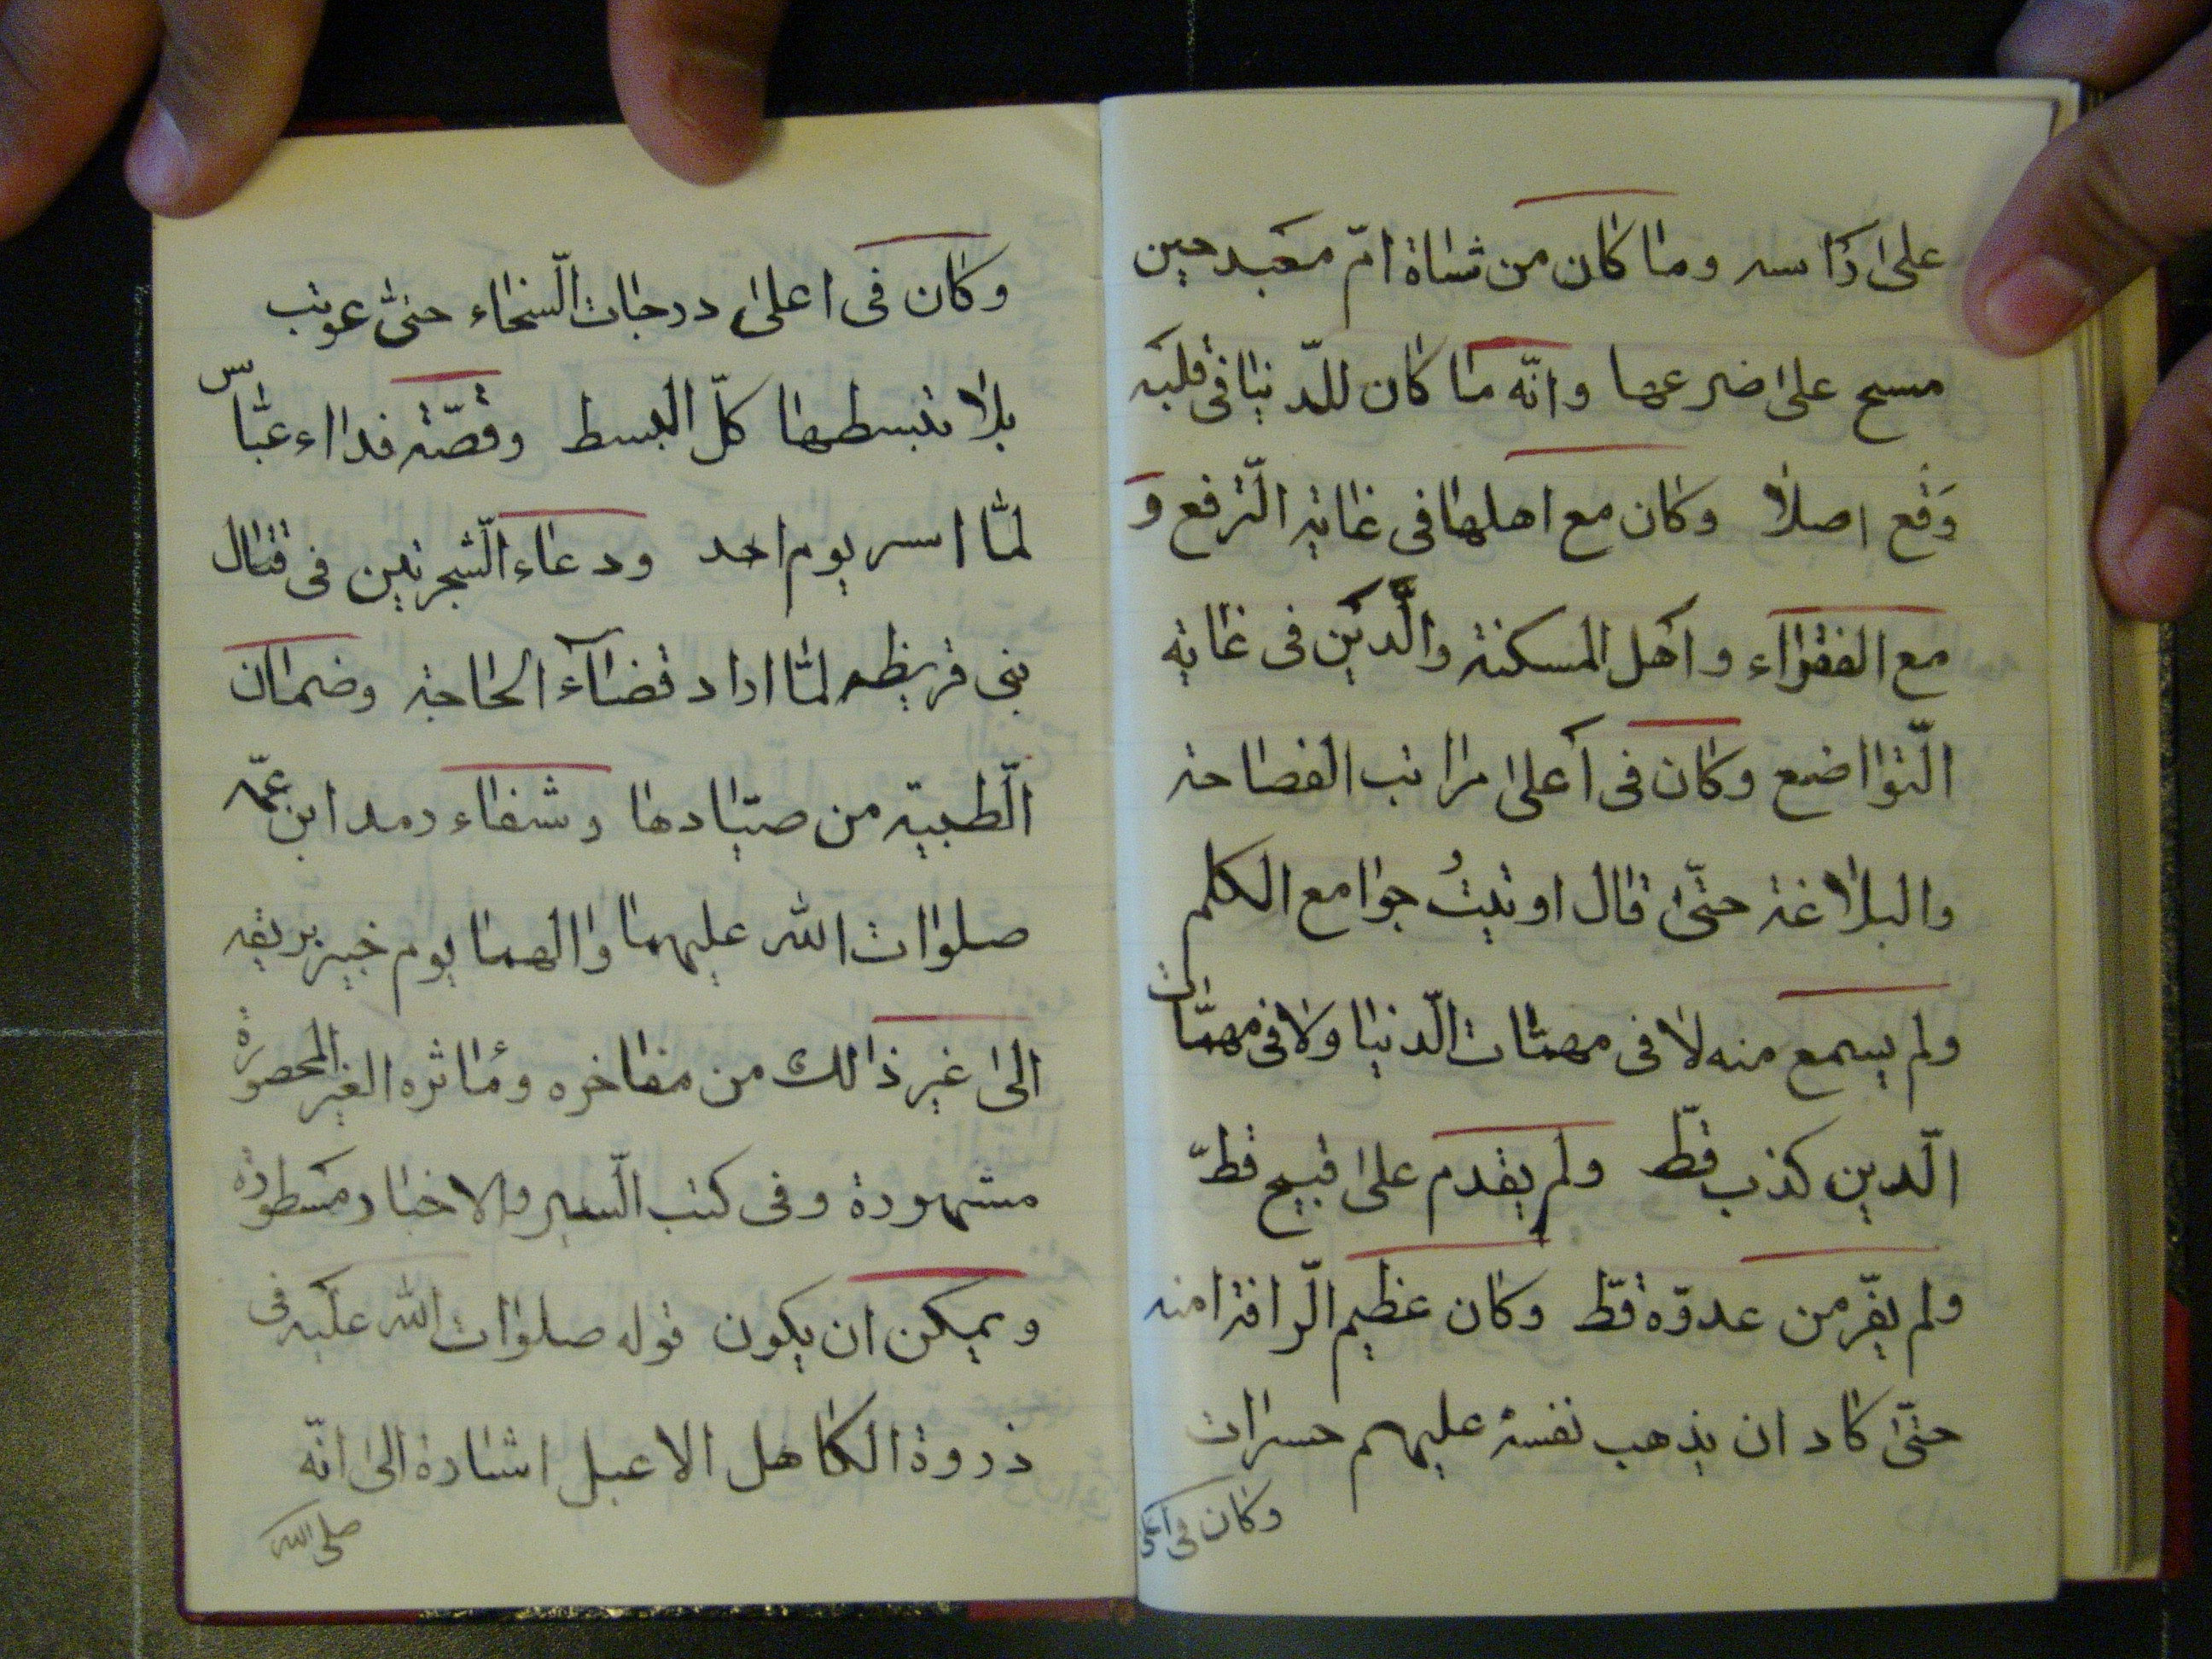 على رٰاسه ومٰا كٰان من شٰاة امّ معبد حين
مسح علىٰ ضرعها وانّه مٰا كٰان للدّنيٰا فى قلبه
وَقع اصلاٰ وكٰان مع اهلهٰا فى غٰاية الّترفع و
مع الفقرٰاء واهل المسكنة والّدين فى غٰاية
الّتوٰاضع وكٰان فى أعلىٰ مرٰاتب الفصٰاحة
والبلاٰغة حتّىٰ قٰال اوتيتُ جوٰامع الكلم
ولم يسمع منه لاٰ فى مهمّٰات الّدنيٰا ولاٰ فى مهمّٰات
الّدين كذب قطّ ولم يقدم علىٰ قبيح قطّ
ولم يفّر من عدوّه قطّ وكٰان عظيم الّرافة امته
حتّىٰ كٰاد ان يذهب نفسه عليهم حسرات
وكٰان فى اعلى
وكٰان فى اعلىٰ درجٰات الّسخٰاء حتىّٰ عوتب
بلاٰ تبسطهٰا كلّ البسط وقصّة فداء عبّٰاس
لمّٰا اسر يوم احد ودعٰاء الّشجرتين فى قتٰال
بنى قريظه لمّٰا اراد قضٰآء الحٰاجة وضمٰان
الّظبية من صيّٰادهٰا وشفٰاء رمد ابن عمّه
صلوٰات الله عليهمٰا وٰالهمٰا يوم خيبر بريقه
الىٰ غير ذٰالك من مفٰاخره ومٰاثره الغير المحصورة
مشهورة وفى كتب الّسير والاخبٰار مسطورة
ويمكن ان يكون قوله صلوٰات الله عليه فى
ذروة الكٰاهل الاعبل اشٰارة الىٰ انّه
صلى الله